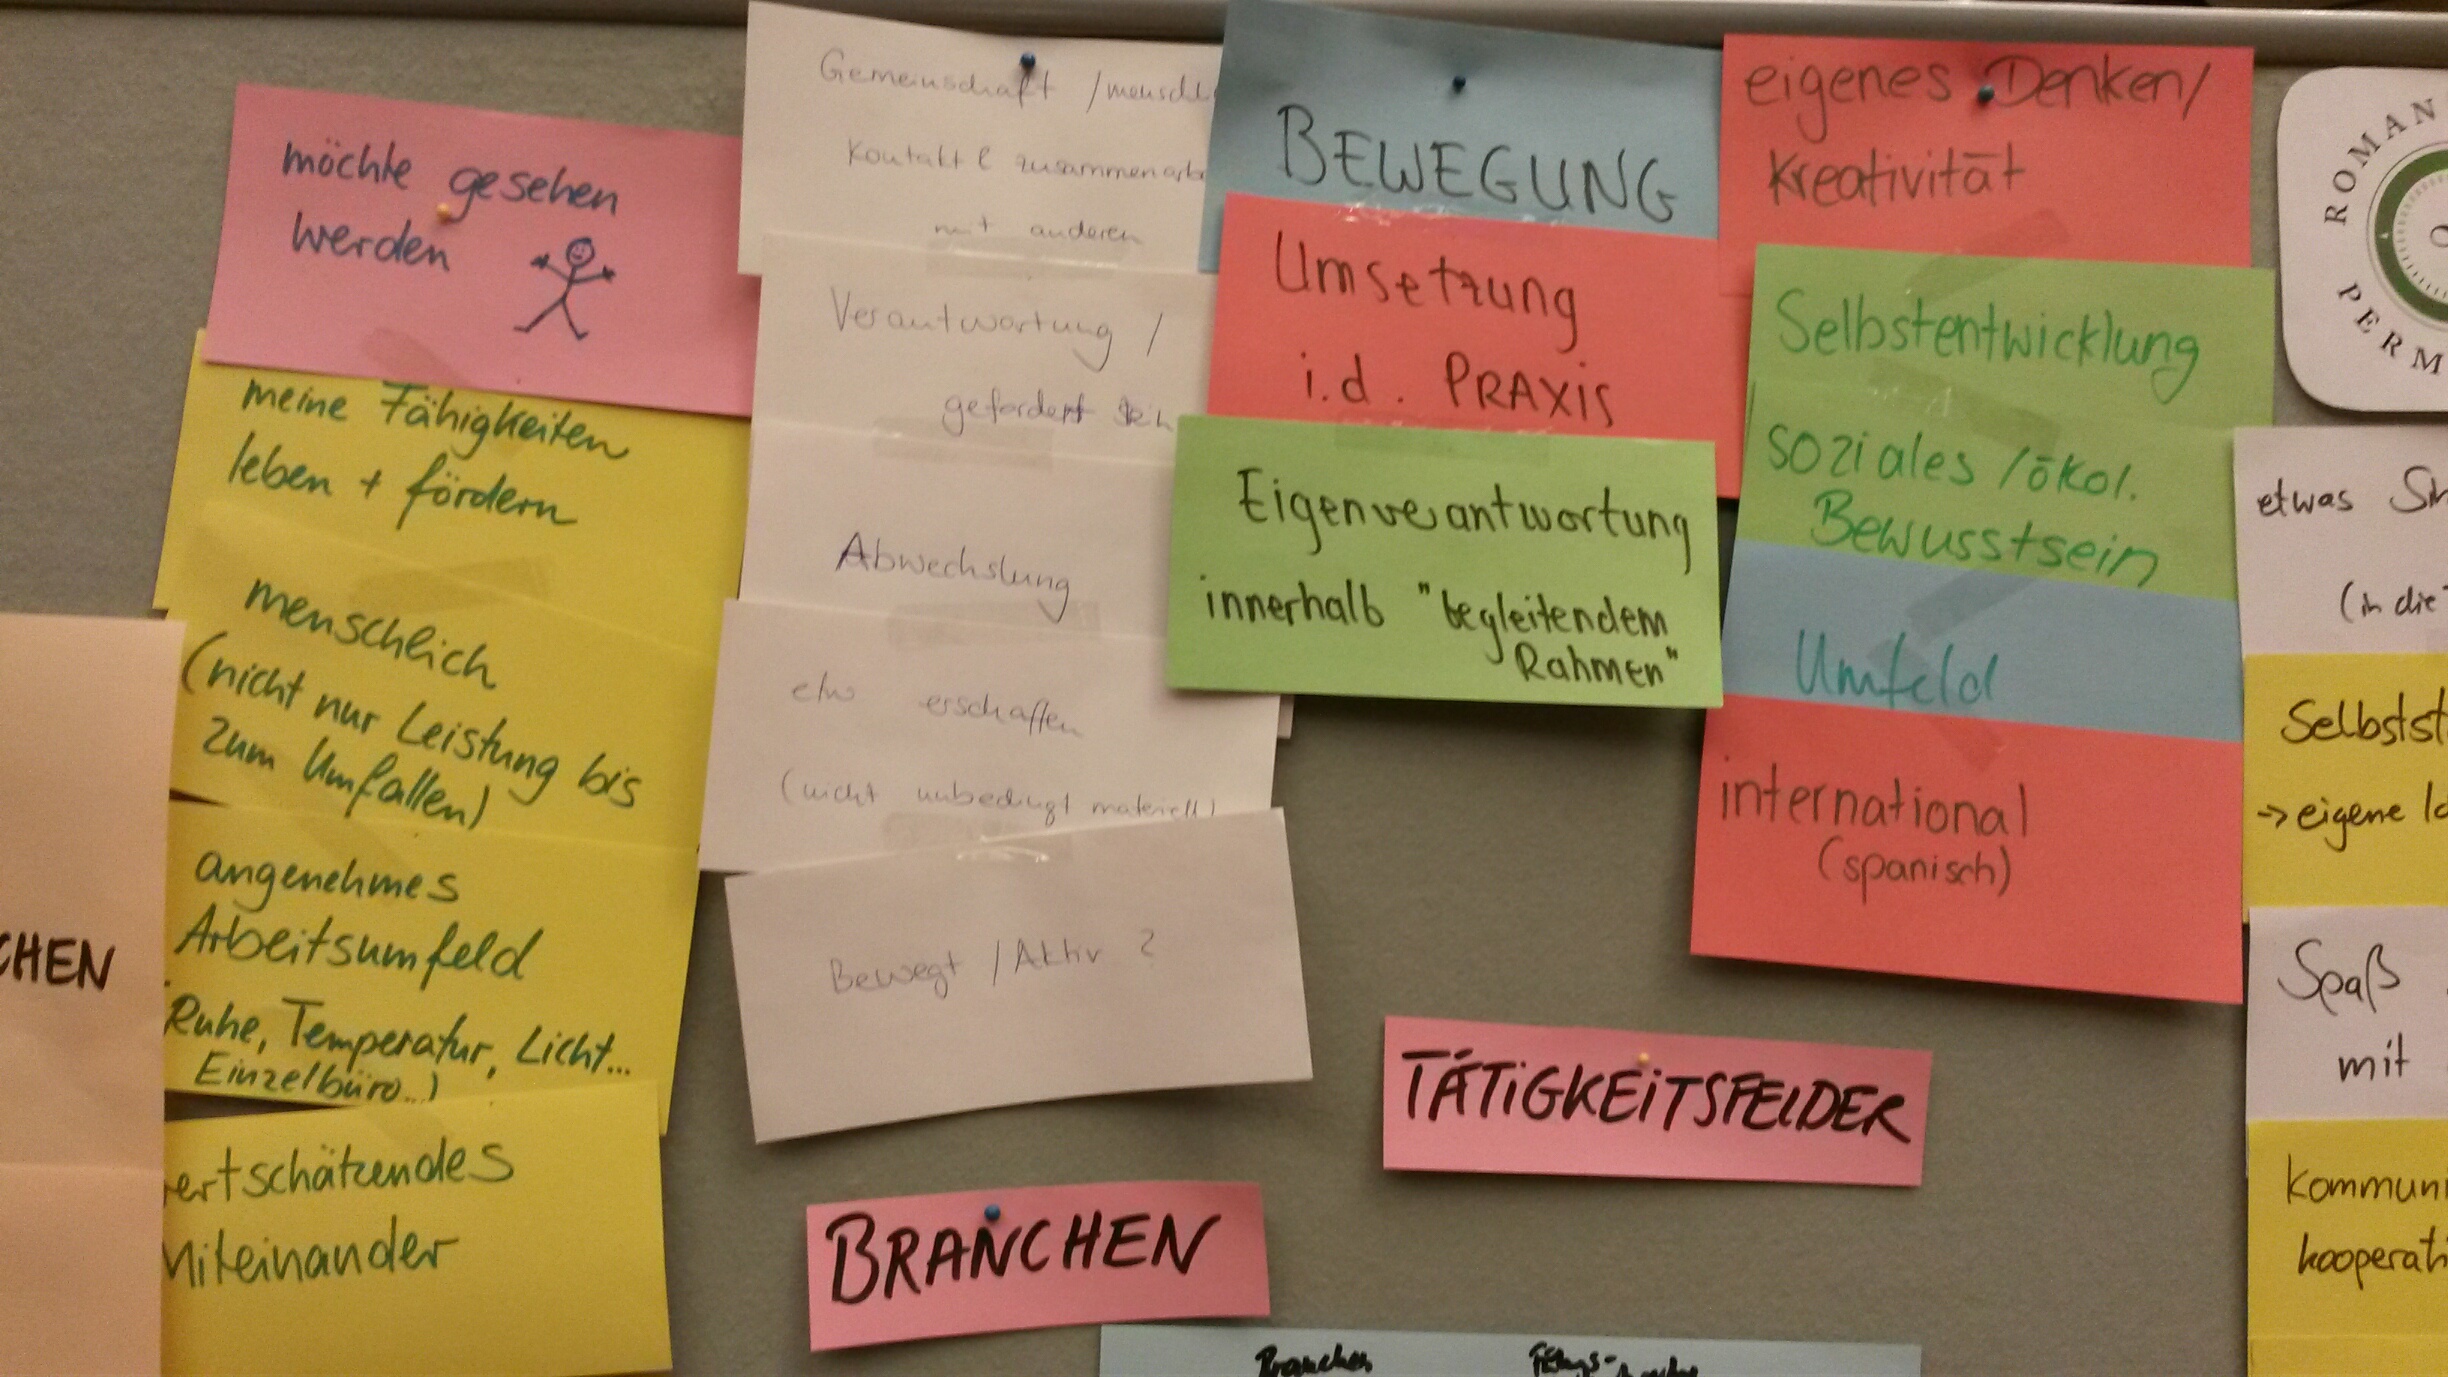 möchte gesehen
werden
meine Fähigkeiten
leben + fördern
menschlich
(nicht nur Leistung bis
zum Umfallen)
angenehmes
Arbeitsumfeld
Ruhe, Temperatur, Licht...
Einzelbüro...)
ertschätzendes
Miteinander
CHEN
Gemeinschaft / menschl
Kontakte zusammenarbe
mit anderen
Verantwortung /
gefordert sein
Abwechslung
etw erschaffen
(nicht unbedingt materiell)
Bewegt / Aktiv ?
BEWEGUNG
Umsetzung
i.d. PRAXIS
Eigenverantwortung
innerhalb "begleitendem
Rahmen"
eigenes Denken/
Kreativität
Selbstentwicklung
soziales / ökol.
Bewusstsein
Umfeld
international
(spanisch)
TÄTIGKEITSFELDER
BRANCHEN
Branchen
ROMAN
PERM
etwas
(in die
Selbstst
→ eigene
Spaß
mit
kommuni
kooperati